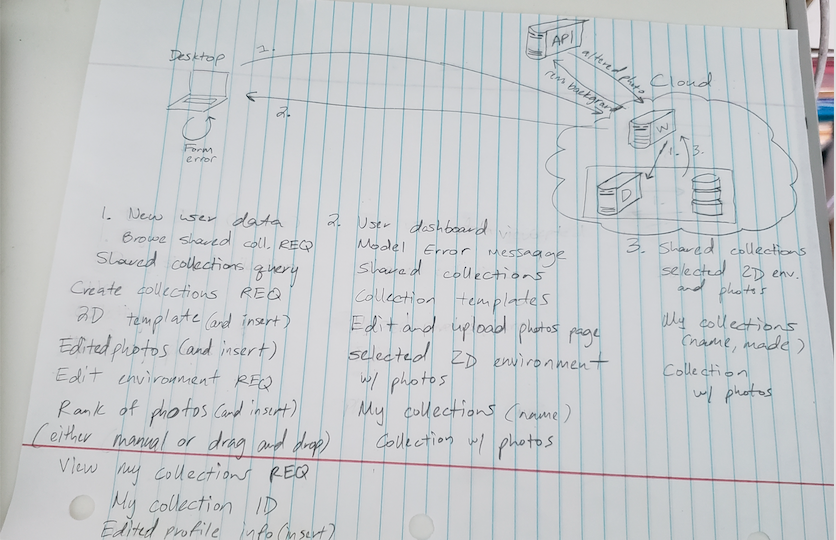 API
Desktop
1.
altered photo
rem background
Cloud
2.
W
Form
error
1.
3.
D
1. New user data
Browe shared coll. REQ
Shared collections query
Create collections REQ
2D template (and insert)
Edited photos (and insert)
Edit environment REQ
Rank of photos (and insert)
(either manual or drag and drop)
View my collections REQ
My collection ID
Edited profile info (insert)
2. User dashboard
Model Error Messaage
Shared collections
Collection templates
Edit and upload photos page
selected 2D environment
w/ photos
My collections (name)
Collection w/ photos
3. Shared collections
selected 2D env.
and photos
My collections
(name, made)
Collection
w/ photos